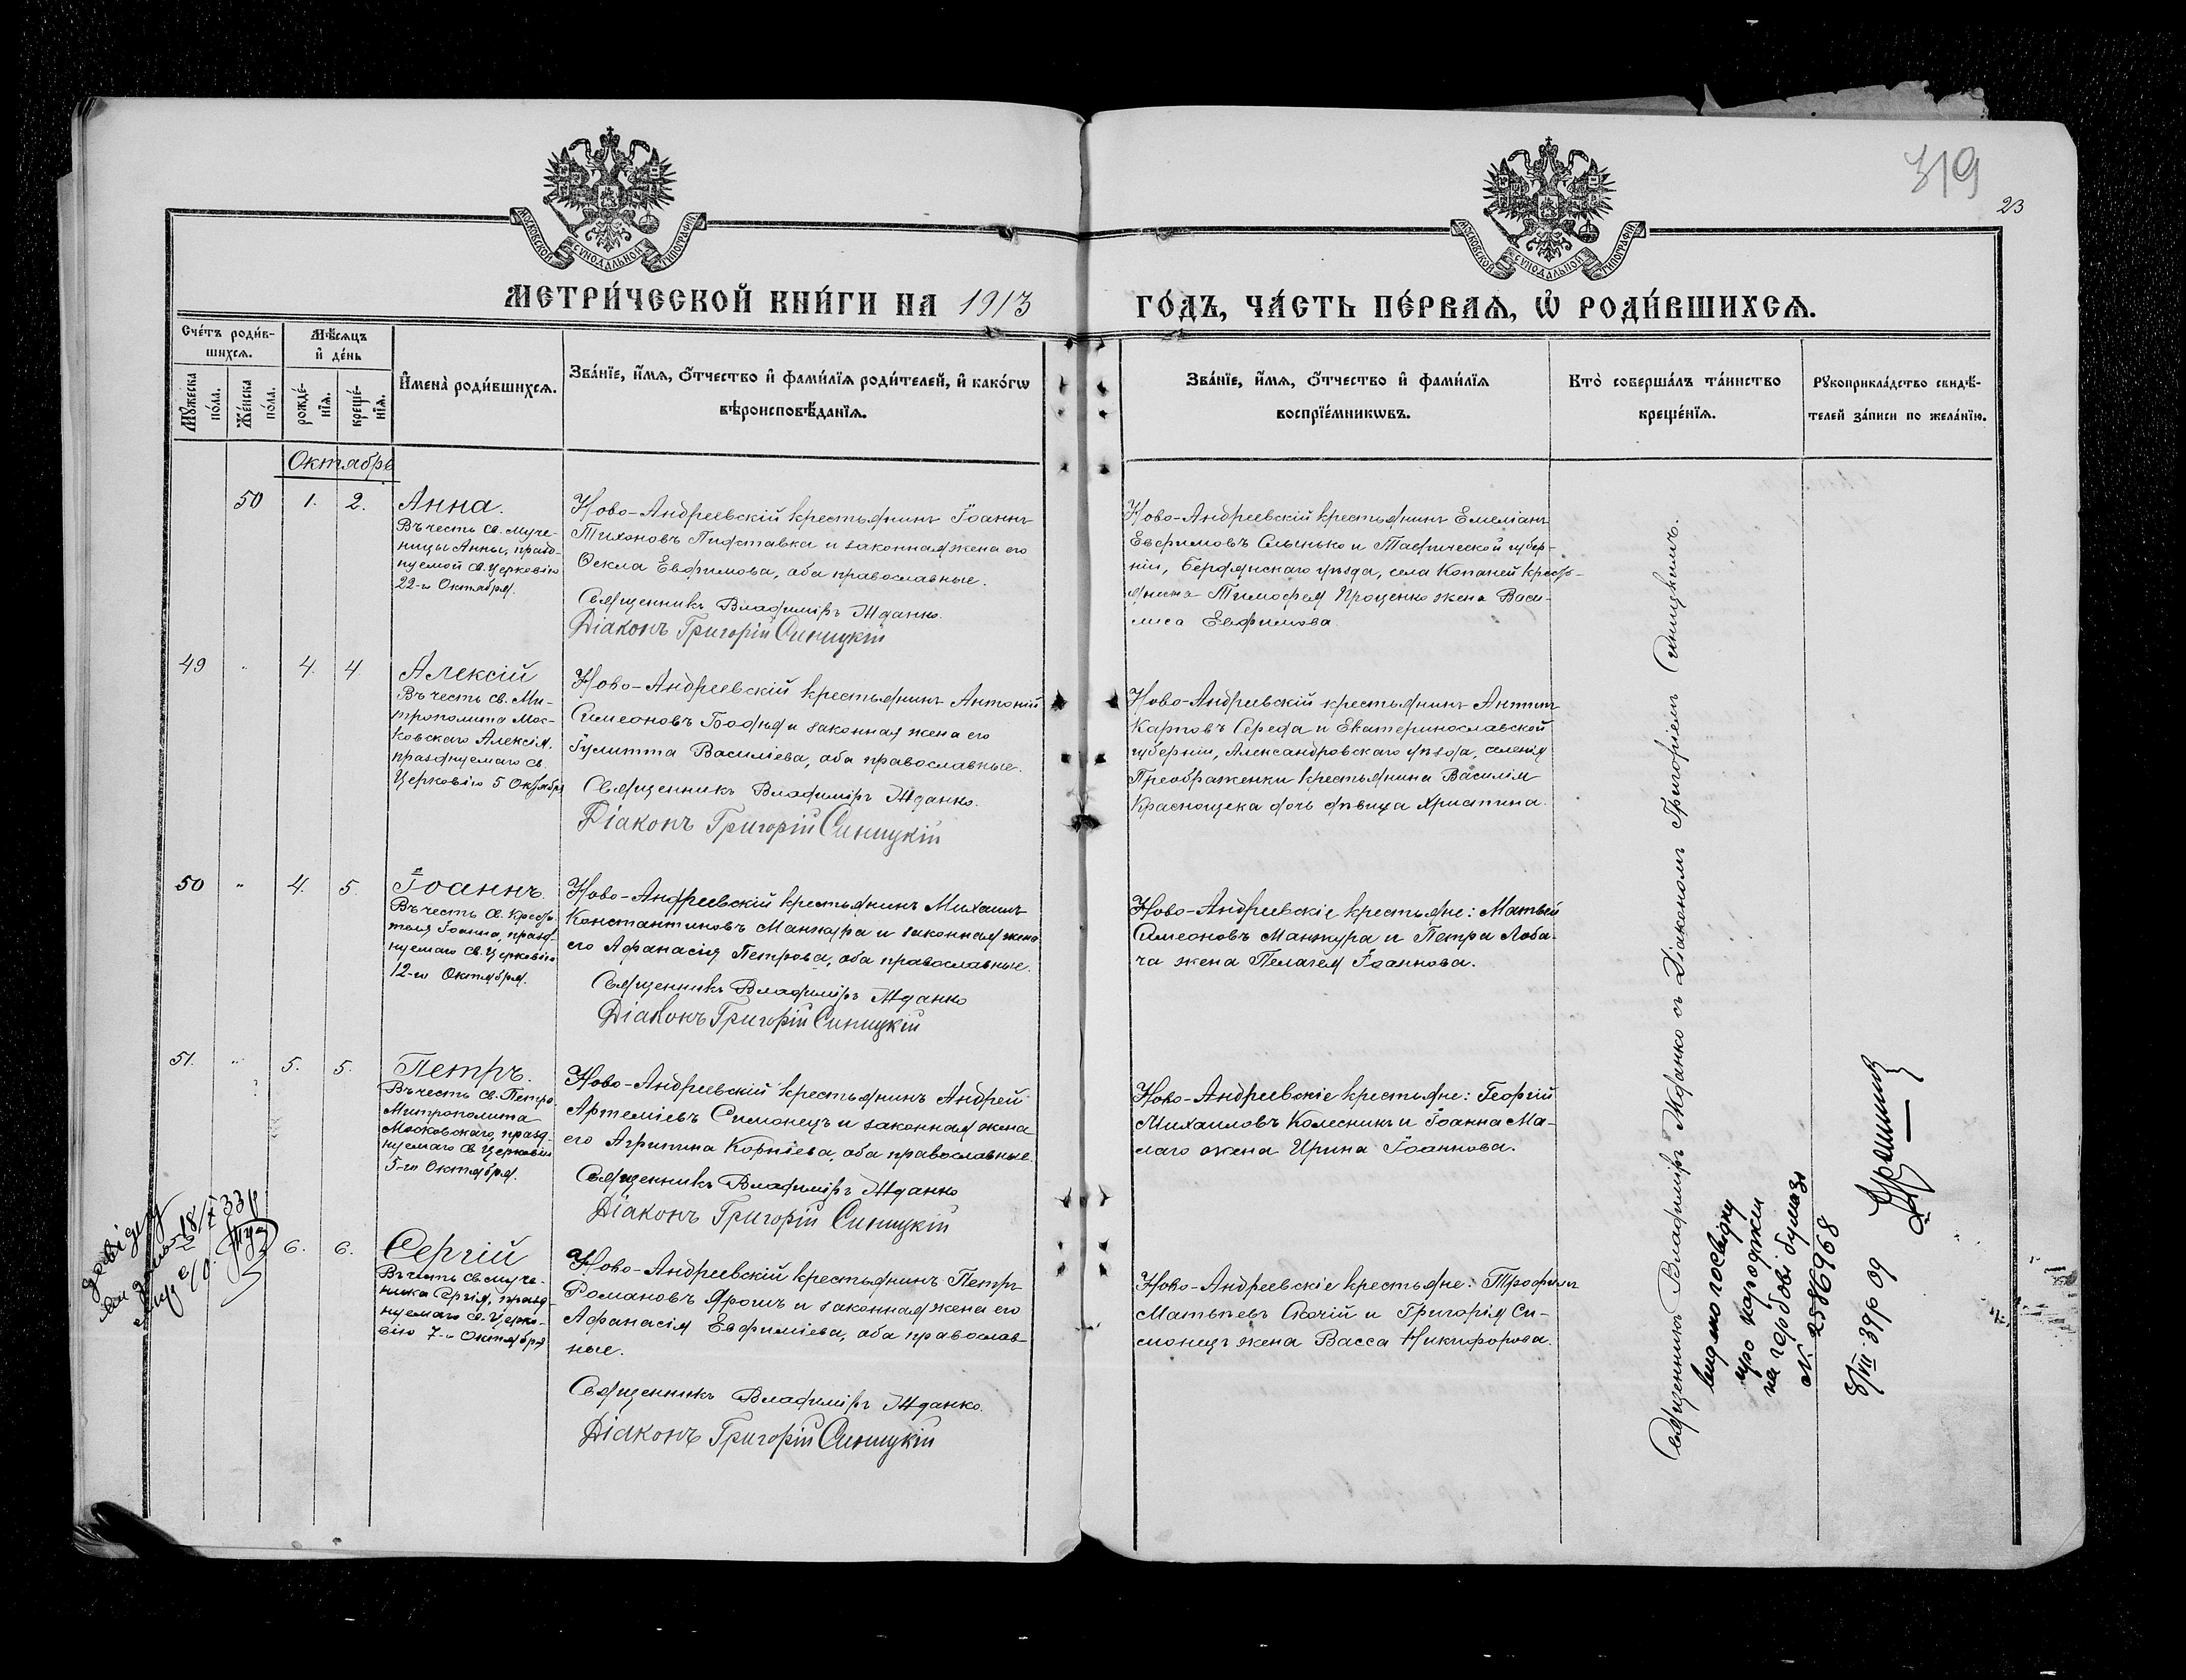 319
23
МОСКОВСКОЙ СѴНОДАЛЬНОЙ ТИПОГРАФІИ
МОСКОВСКОЙ СѴНОДАЛЬНОЙ ТИПОГРАФІИ
МЕТРИ́ЧЕСКОЙ КНИ́ГИ НА 1913 ГО́ДЪ, ЧА́СТЬ ПЕ́РВАѦ, Ѡ҆ РОДИ́ВШИХСѦ.
Сче́тъ роди́в-
шихсѧ.
Мꙋ́жеска
по́ла.
Же́нска
по́ла.
Мѣ́сѧцъ
и҆ де́нь
рожде́-
нїѧ.
креще́-
нїѧ.
И҆мена̀ роди́вшихсѧ.
Зва́нїе, и҆́мѧ, ѻ҆́тчество и҆ фами́лїѧ роди́телей, и҆ како́гѡ
вѣроисповѣ́данїѧ.
Зва́нїе, и҆́мѧ, ѻ҆́тчество и҆ фами́лїѧ
воспрїе́мникѡвъ.
Кто̀ соверша́лъ та́инство
креще́нїѧ.
Рꙋкоприкла́дство свидѣ́-
телей за́писи по жела́нїю.
Октябрь
50 1. 2.
Анна.
Въ честь св. муче-
ницы Анны, празд-
нуемой св. Церковію
22-го Октября.
Ново-Андреевскій крестьянинъ Іоаннъ
Тихоновъ Пидставка и законная жена его
Ѳекла Евфимова, оба православные.
Священникъ Владиміръ Жданко.
Діаконъ Григорій Синицкій
Ново-Андреевскій крестьянинъ Емеліанъ
Евфимовъ Слынько и Таврической губер-
ніи, Бердянскаго уѣзда, села Копаней кресть-
янина Тимофея Проценко жена Васи-
лиса Евфимова.
49 " 4. 4
Алексій
Въ честь св. Ми-
трополита Мос-
ковскаго Алексія,
празднуемаго св.
Церковію 5 Октября
Ново-Андреевскій крестьянинъ Антоній
Симеоновъ и законная жена его
Іулитта Василіева, оба православные.
Священникъ Владиміръ Жданко.
Діаконъ Григорій Синицкій
Ново-Андреевскій крестьянинъ Антипъ
Карповъ Середа и Екатеринославской
губерніи, Александровскаго уѣзда, селенія
Преображенки крестьянина Василія
Краснощека дочь дѣвица Христина.
50 " 4. 5.
Іоаннъ.
Въ честь св. Крести-
теля Іоанна, празд-
нуемаго св. Церковію
12-го Октября.
Ново-Андреевскій крестьянинъ Михаилъ
Константиновъ Манжура и законная жена
его Афанасія Петрова, оба православные.
Священникъ Владиміръ Жданко
Діаконъ Григорій Синицкій
Ново-Андреевскіе крестьяне: Матвей
Симеоновъ Манжура и Петра Лоба-
ча жена Пелагея Іоаннова.
51. " 5. 5.
Петръ.
Въ честь св. Петра
Митрополита
Московскаго, празд-
нуемаго св. Церковію
5-го Октября.
Ново-Андреевскій крестьянинъ Андрей
Артеміевъ Симонецъ и законная жена
его Агрипина Корніева, оба православные.
Священникъ Владиміръ Жданко
Діаконъ Григорій Синицкій
Ново-Андреевскіе крестьяне: Георгій
Михаиловъ Колесникъ и Іоанна Ма-
лаго жена Ирина Іоаннова.
52 6. 6.
Сергій
Въ честь св. муче-
ника Сргія, празд-
нуемаго св. Церко-
вію 7-го Октября
Ново-Андреевскій крестьянинъ Петръ
Романовъ Ярошъ и законная жена его
Афанасія Евфиміева, оба православ-
ные.
Священникъ Владиміръ Жданко.
Діаконъ Григорій Синицкій
Ново-Андреевскіе крестьяне: Трофимъ
Матвѣевъ Скочій и Григорія Си-
монецъ жена Васса Никифорова.
Священникъ Владиміръ Жданко съ Діакономъ Григоріемъ Синицкимъ.
видано посвідку
про народжен
на гербові бумазі
№ 2586968
8/VII 39р
довідку